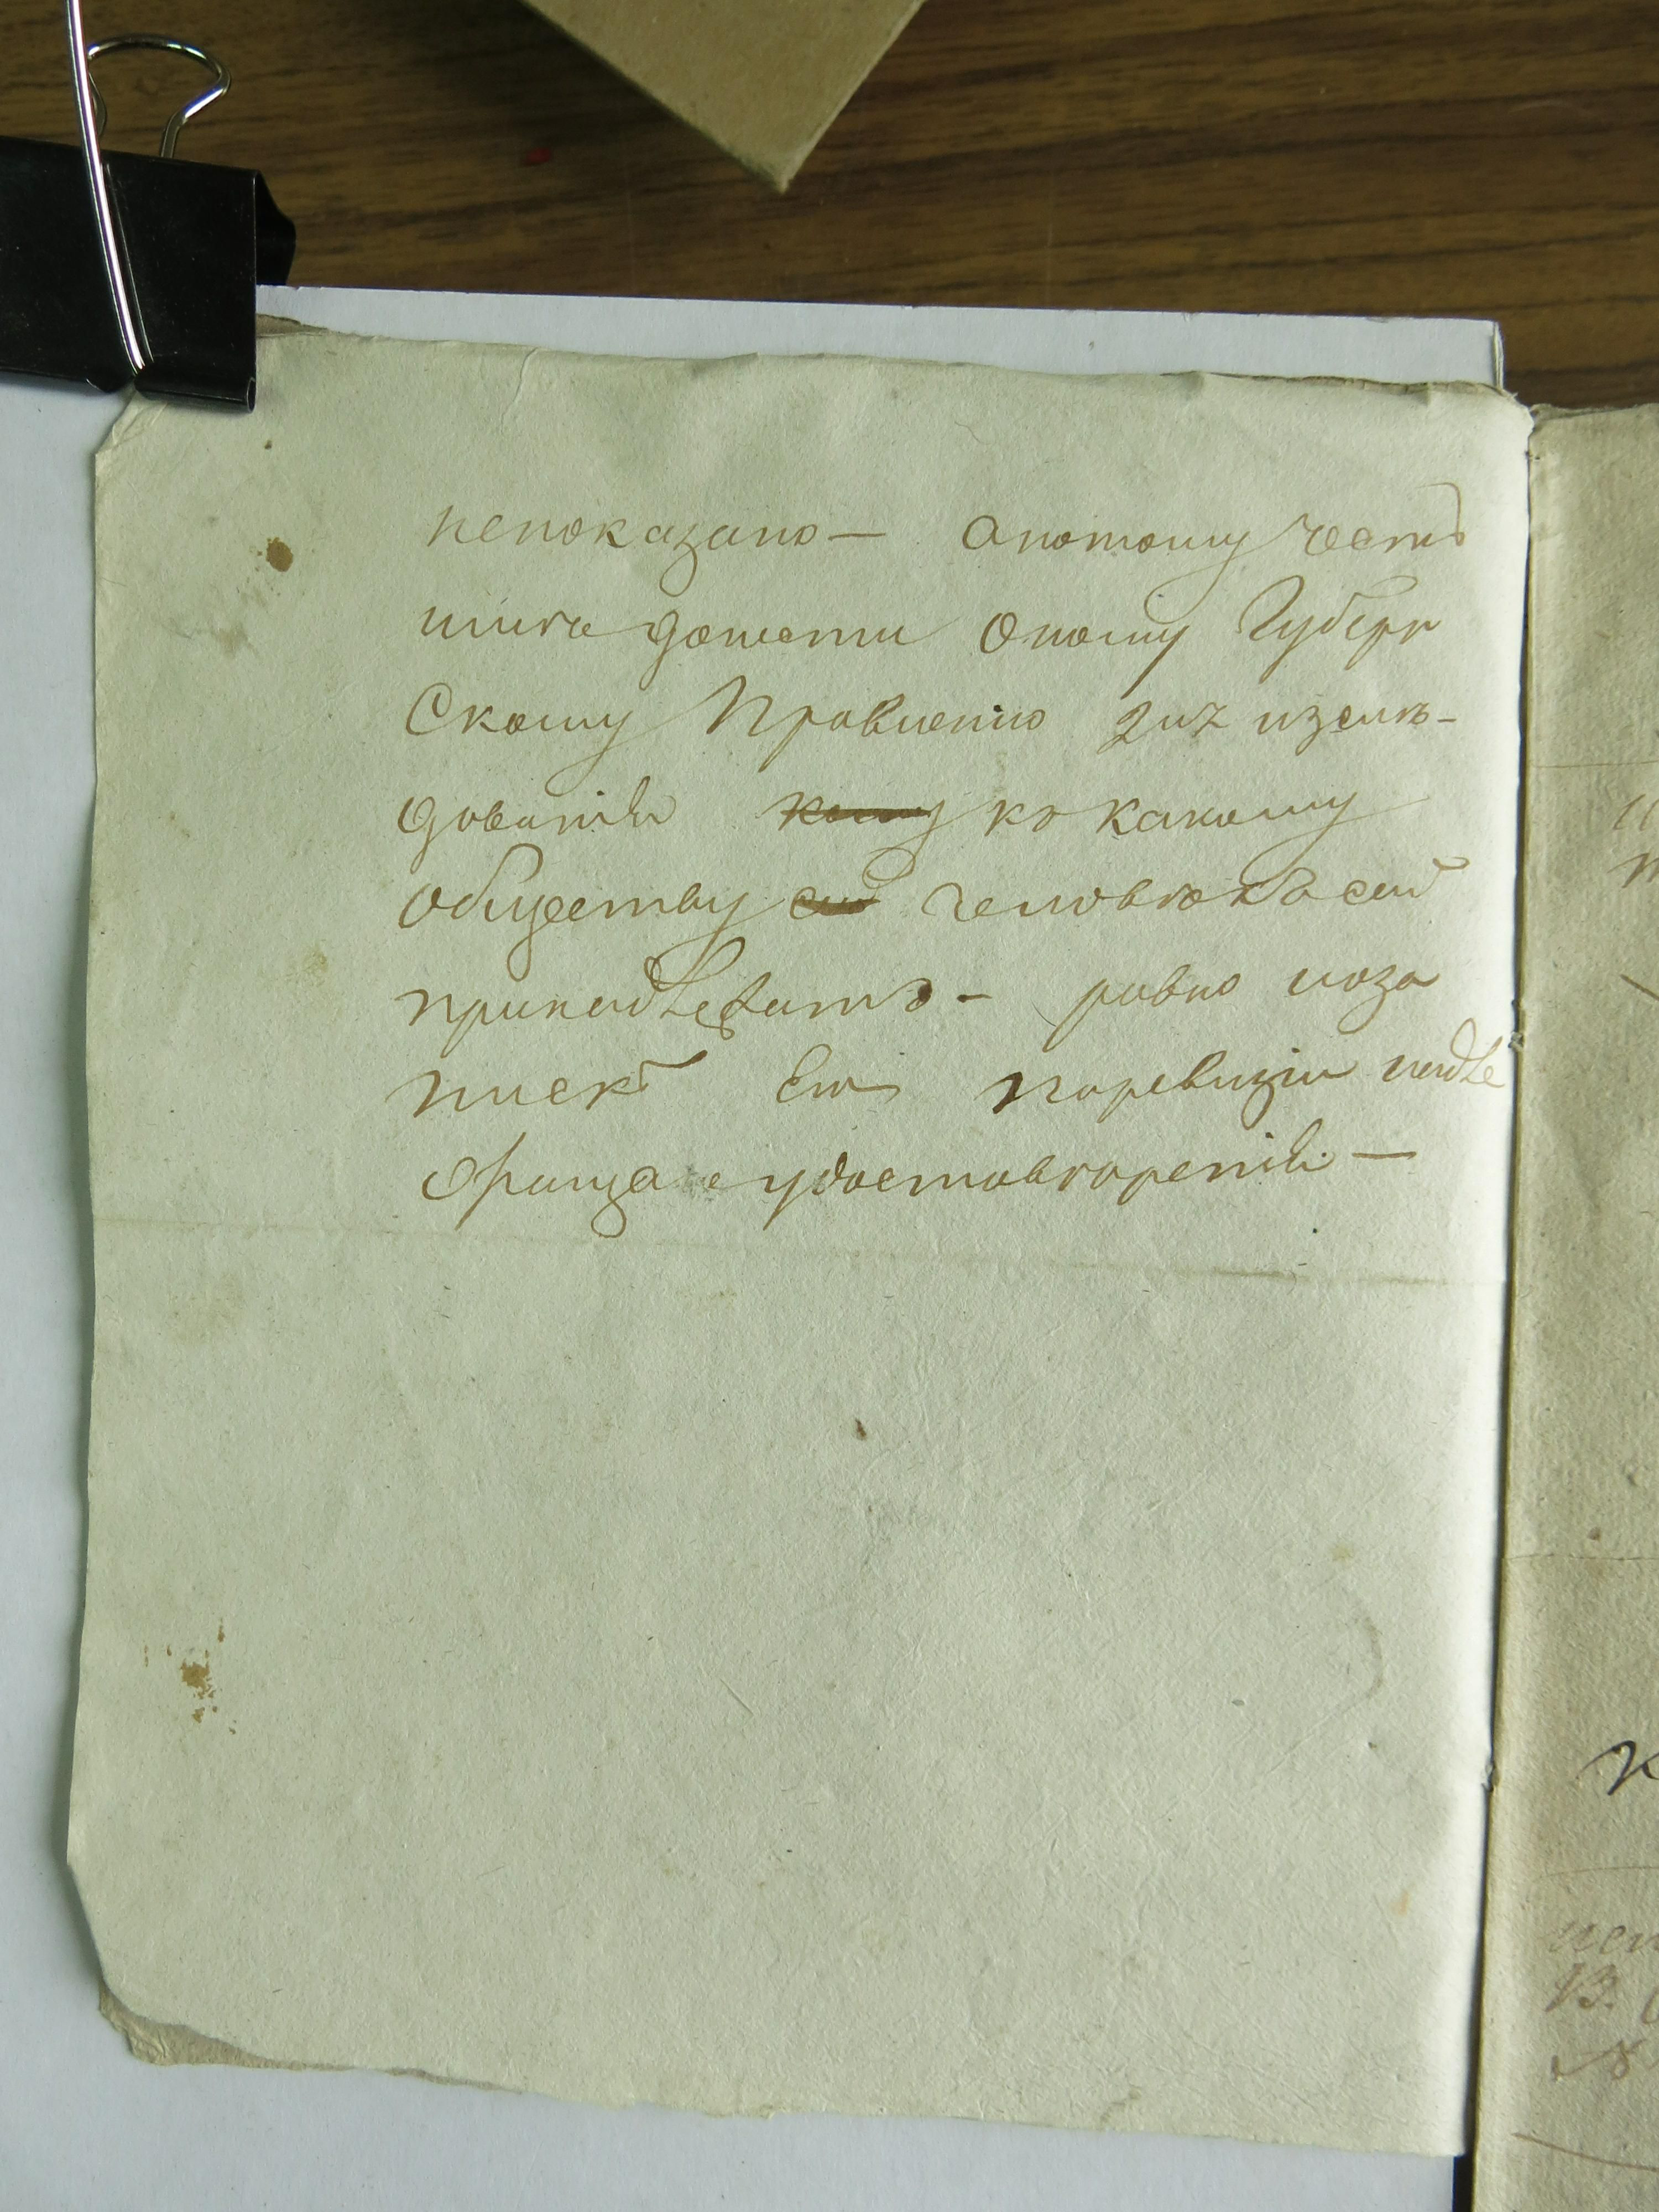 непоказано — апотому честь
имѣю донести оному Губерн
Скому Правленію для изслѣ-
дованія кому къ какому
обществу сей человѣкъ сей
принадлежитъ — равно иоза
пискѣ Его поревизіи надле
жащаго удостовѣренія —